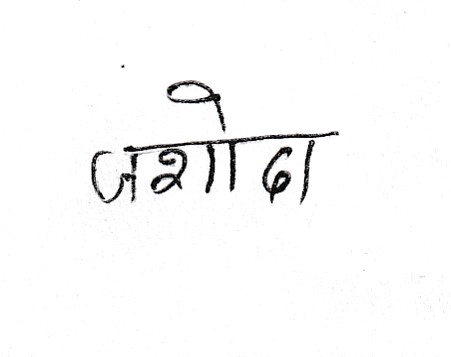 जशोदा